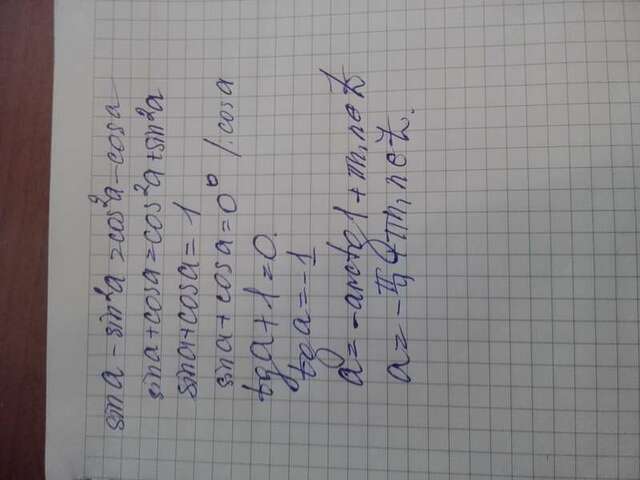 sin a - sin²a = cos²a - cos a
sin a + cos a = cos²a + sin²a
sin a + cos a = 1
sin a + cos a = 0° /: cos a
tg a + 1 = 0.
tg a = -1
a = -arctg 1 + πn, n ∈ Z
a = -π/4 + πn, n ∈ Z.